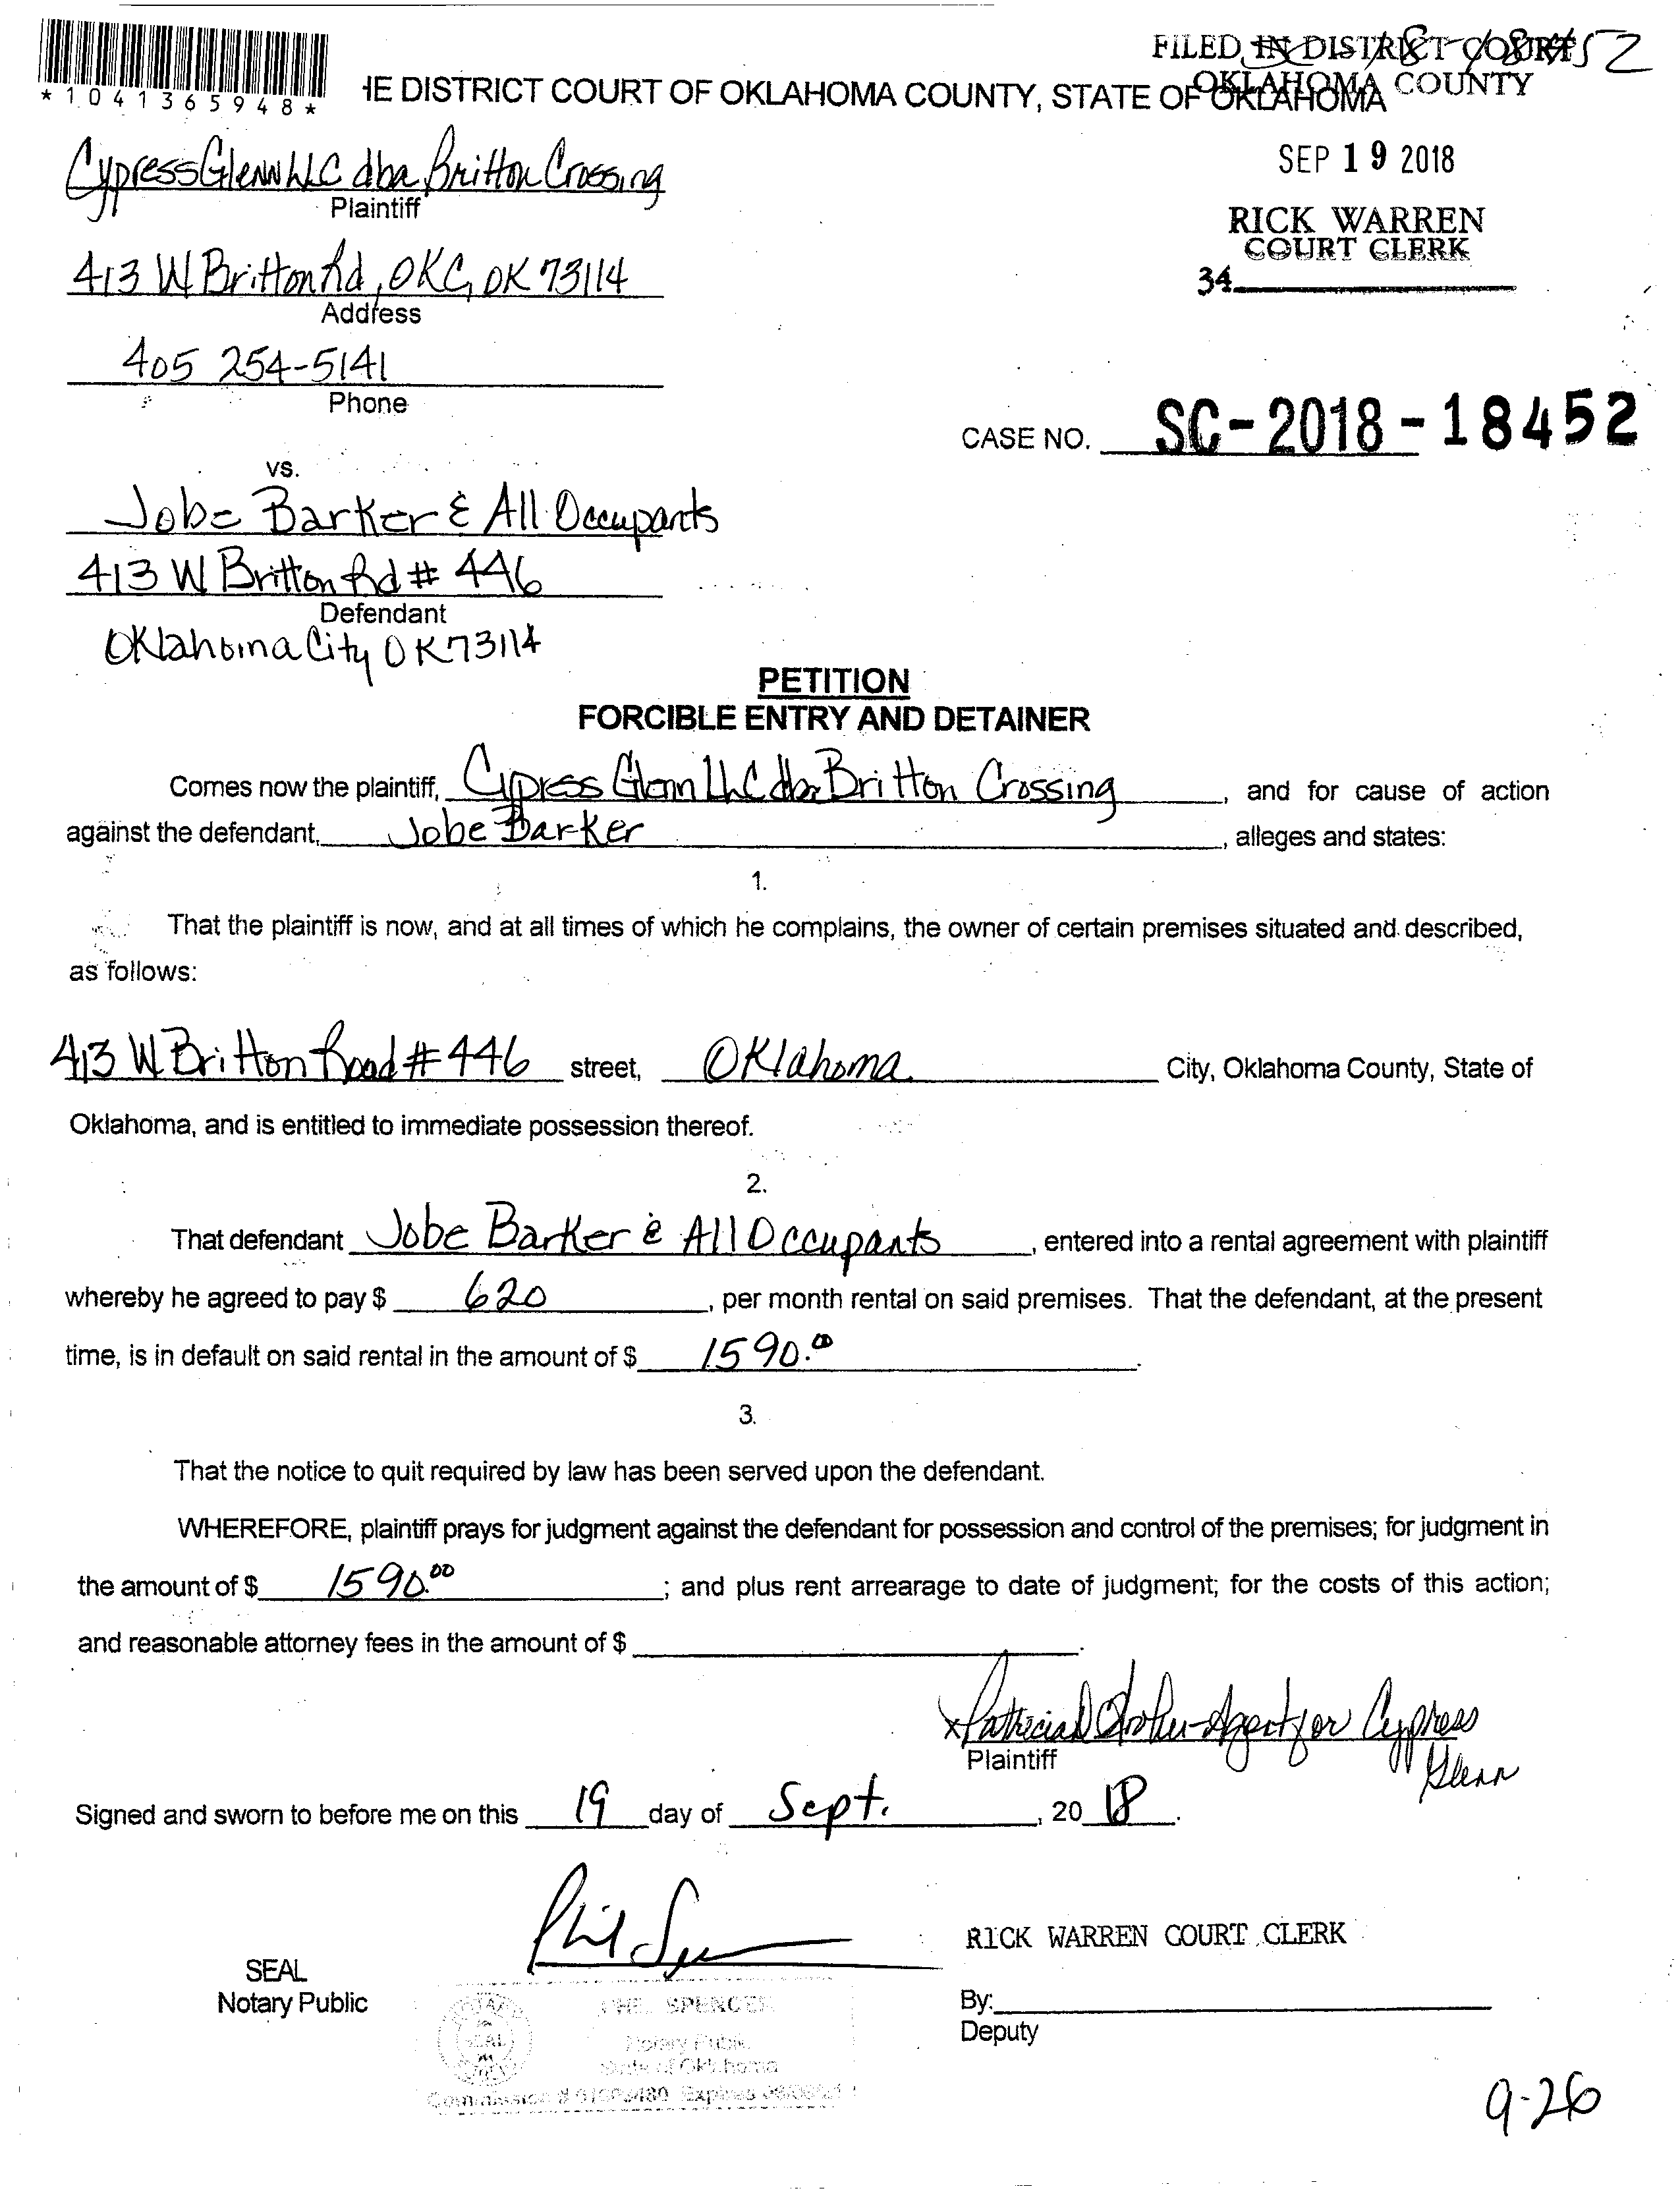 FILED IN DISTRICT COURT
OKLAHOMA COUNTY
*1041365948*
HE DISTRICT COURT OF OKLAHOMA COUNTY, STATE OF OKLAHOMA
Cypress Glenn LLC dba Britton Crossing
Plaintiff
SEP 19 2018
RICK WARREN
COURT CLERK
34
413 W Britton Rd, OKC, OK 73114
Address
405 254-5141
Phone
CASE NO. SC-2018-18452
vs.
Jobe Barker & All Occupants
413 W Britton Rd # 446
Defendant
Oklahoma City OK 73114
PETITION
FORCIBLE ENTRY AND DETAINER
Comes now the plaintiff, Cypress Glenn LLC dba Britton Crossing, and for cause of action
against the defendant, Jobe Barker, alleges and states:
1.
That the plaintiff is now, and at all times of which he complains, the owner of certain premises situated and described,
as follows:
413 W Britton Road # 446 street, Oklahoma City, Oklahoma County, State of
Oklahoma, and is entitled to immediate possession thereof.
2.
That defendant Jobe Barker & All Occupants, entered into a rental agreement with plaintiff
whereby he agreed to pay $ 620, per month rental on said premises. That the defendant, at the present
time, is in default on said rental in the amount of $ 1590.00.
3.
That the notice to quit required by law has been served upon the defendant.
WHEREFORE, plaintiff prays for judgment against the defendant for possession and control of the premises; for judgment in
the amount of $ 1590.00; and plus rent arrearage to date of judgment; for the costs of this action;
and reasonable attorney fees in the amount of $
x Patricia Agent for Cypress
Glenn
Plaintiff
Signed and sworn to before me on this 19 day of Sept., 2018.
RICK WARREN COURT CLERK
SEAL
Notary Public
SPENCER
Notary Public
State of Oklahoma
By:
Deputy
9-26